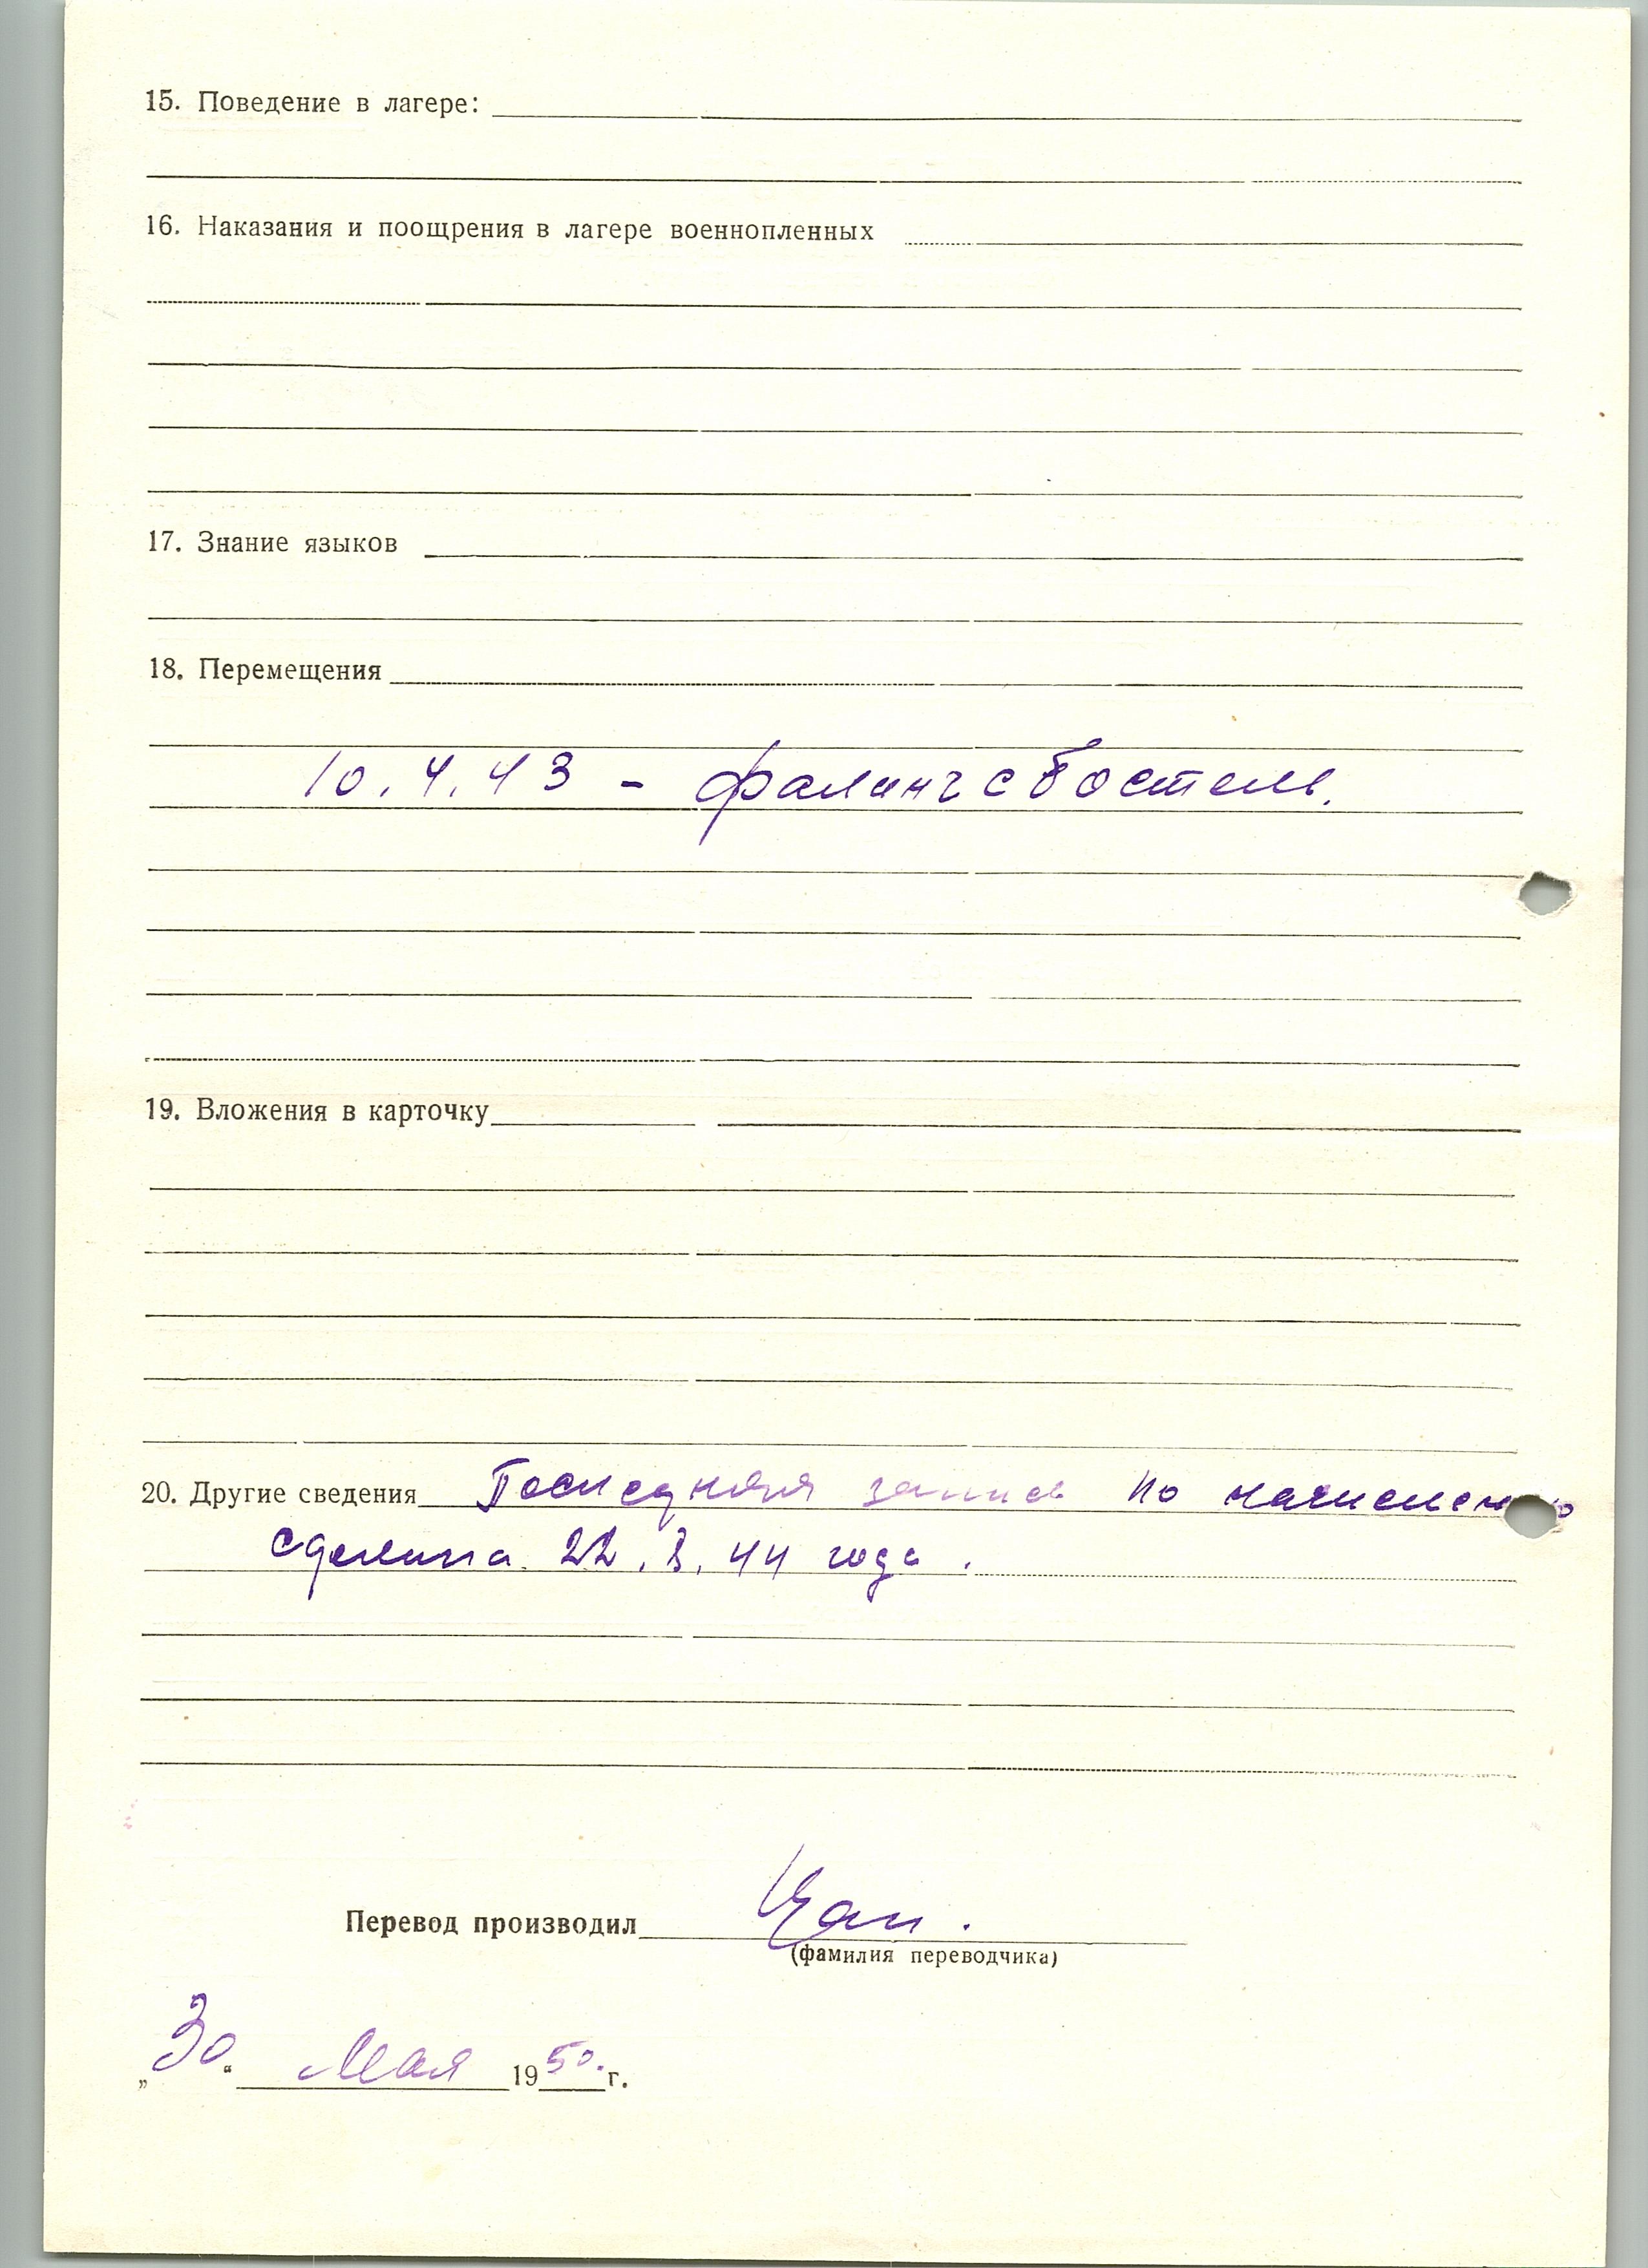 15. Поведение в лагере:
16. Наказания и поощрения в лагере военнопленных
17. Знание языков
18. Перемещения
10.4.43 - Фалингсбостель.
19. Вложения в карточку
20. Другие сведения Последняя запись по
сделана 22. 44 года.
Перевод производил
(фамилия переводчика)
„30“ Мая 1950 г.